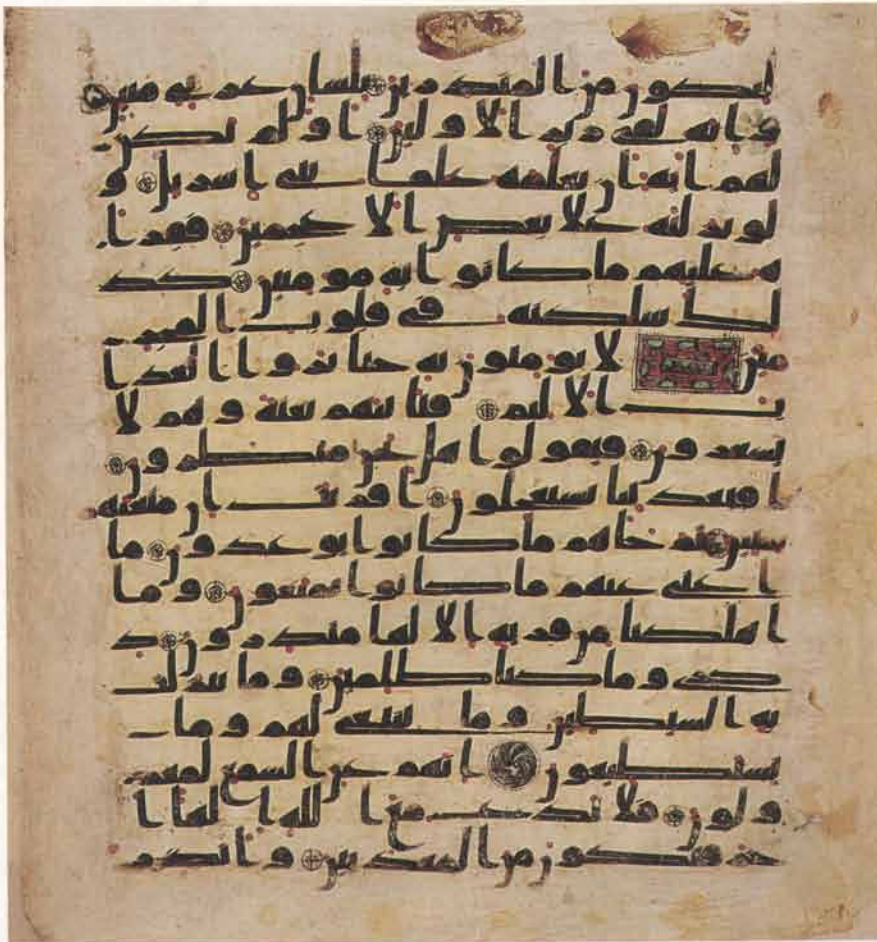 لتكون من المنذرين بلسان عربى مبين
وانه لفى زبر الاولين او لم يكن
لهم اية ان يعلمه علما بنى اسريل و
لو نزلنه على بعض الاعجمين فقرا
ه عليهم ما كانوا به مومنين كذ
لك سلكنه فى قلوب المجر
مين لا يومنون به حتى يروا العذا
ب الاليم فياتيهم بغتة وهم لا
يشعرون فيقولوا هل نحن منظرون
افبعذابنا يستعجلون افريت ان متعنهم
سنين ثم جاهم ما كانوا يوعدون ما
اغنى عنهم ما كانوا يمتعون وما
اهلكنا من قرية الا لها منذرون ذ
كرى وما كنا ظلمين وما تنزلت
به الشيطين وما ينبغى لهم وما
يستطيعون انهم عن السمع لمعز
ولون فلا تدع مع الله الها ا
خر فتكون من المعذبين وانذر